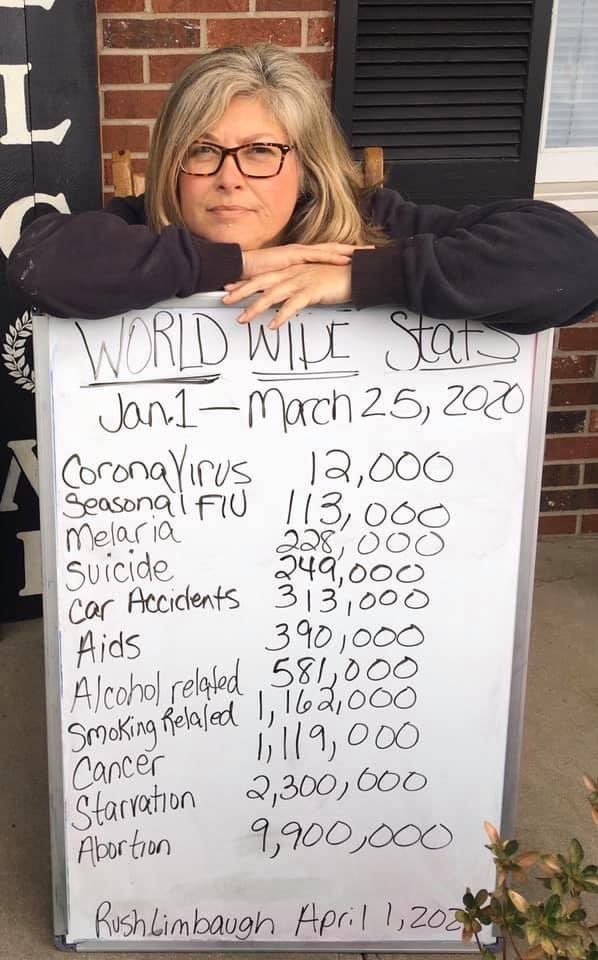 WORLD WIDE Stats
Jan.1 — March 25, 2020
CoronaVirus 12,000
Seasonal Flu 113,000
Melaria 228,000
Suicide 249,000
Car Accidents 313,000
Aids 390,000
Alcohol related 581,000
Smoking Related 1,162,000
Cancer 1,119,000
Starvation 2,300,000
Abortion 9,900,000
Rush Limbaugh April 1, 202